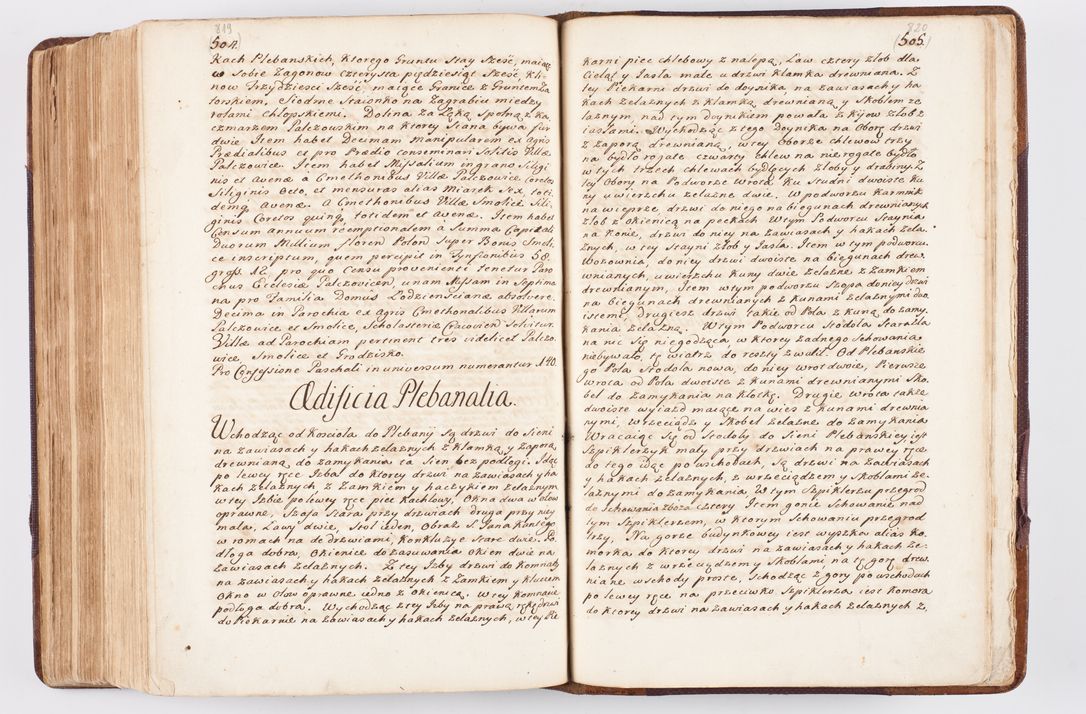 819
504.
Kach Plebanskich, Ktorego Gruntu Stay Sześć, maiące
w Sobie Zagonow Czterysta piędziesiąt Sześć, Kli-
now Trzydziesci Sześć, maiące Granice z Gruntem Za
torskiem, Siodme Staionko na Zagrabiu miedzy
rolami Chłopskiemi. Dolina za Łąką Spolną z Ka
czmarzem Palczowskim na Ktorey Siana bywa fur
dwie Item habet Decimam manipularem ex agris
Prædialibus et pro Prædio conseminari solitis Villæ
Palczowice. Item habet Missalium in grano Siligi-
nis et Avenæ a Cmethonibus Villæ Palczowice Coretos
Siliginis Octo, et mensuras alias Miarek Sex, toti
demq; Avenæ. A Cmethonibus Villæ Smolice Sili-
ginis Coretos quinq; totidem et Avenæ. Item habet
Censum annuum reemptionalem a Summa Capitali
Duorum Millium floren Polon Super Bonis Smoli-
ce inscriptum, quem percipit in Tynfionibus 58
gross 12, pro quo Censu provenienti tenetur Paro
chus Ecclesiæ Palczovicen unam Missam in Septima
na pro Familia Domus Lodzienscianæ absolvere.
Decima in Parochia ex agris Cmethonalibus Villarum
Palczowice et Smolice, Scholasteriæ Cracovien Solvitur.
Villæ ad Parochiam pertinent tres videlicet Palczo-
wice, Smolice et Grodzisko.
Pro Confessione Paschali in universum numerantur 140.
Ædificia Plebanalia.
Wchodząc od Kosciola do Plebanij Są drzwi do Sieni
na zawiasach y hakach żelaznych z Klamką y Zaporą
drewnianą do zamykania ta Sien bez podłogi. Idąc
po lewey ręce Izba do Ktorey drzwi na zawiasach y ha
kach żelaznych, z Zamkiem y haczykiem żelaznym
w tey Izbie po lewey ręce piec Kachlowy, Okna dwa w ołow
oprawne, Szafa Stara przy drzwiach druga przy niey
mala, Lawy dwie, Stol ieden, Obraz S. Jana Kantego
w romach na de drzwiami, Konkluzye Stare dwie. Po
dłoga dobra, Okienice do zasuwania Okien dwie na
zawiasach żelaznych. Z tey Izby drzwi do Komnaty
na zawiasach y hakach żelaznych z Zamkiem y kluczem
Okno w ołow oprawne iedno z Okienicą. W tey Komnacie
podłoga dobra. Wychodząc z tey Izby na prawą rękę drzwi
do Piekarnie na zawiasach y hakach żelaznych, w tey Pie
820
505.
karni piec chlebowy z nalepą, Law cztery Zlob dla
Cieląt y Jasla male u drzwi Klamka drewniana. Z
tey Piekarni drzwi do doynika, na zawiasach y ha
kach żelaznych z Klamką drewnianą y Skoblem że
laznym, nad tym doynikiem powała z Kijow Zlob z
iaslami. Wychodząc z tego Doynika na Oborę drzwi
z zaporą drewnianą, w tey Oborze Chlewow trzy
na bydlo rogate czwarty Chlew na nierogate bydlo
w tych trzech Chlewach bydlęcych Zloby y drabiny Z
tey Obory na Podworze Wrota Ku Studni dwoiste Ku
ny u wierzchu żelazne dwie. W podworzu Karmnik
na wieprze, drzwi do niego na biegunach drewnianych
Zlob z Okienicą na peckach Wtym Podworcu Staynia
na Konie, drzwi do niey na zawiasach y hakach żela
znych, w tey Stayni Zlob y Jasla. Item w tym podworcu
Wozownia, do niey drzwi dwoiste na biegunach drew
wnianych, u wierzchu Kuny dwie żelazne z Zamkiem
drewnianym, Item w tym podworzu Szopa do niey drzwi
na biegunach drewnianych z Kunami żelaznymi dwo
istemi, drugiesz drzwi takie od Pola z Kuną do zamy-
kania żelazną. Wtym Podworcu Stodola Stara Zla
na nic Się niegodząca, w ktorey żadnego Schowania
niebywało, tę wiatr do reszty zwalił. Od Plebanskie
go Pola Stodola nowa, do niey wrot dwoie, Pierwsze
wrota od Pola dwoiste z Kunami drewnianymi Sko
bel do zamykania na Klotkę. Drugie wrota także
dwoiste wyiazd maiące na wies z Kunami drewnia
nymi, Wrzeciądz y Skobel żelazne do zamykania
Wracaiąc Się od Stodoly do Sieni Plebanskiey, iest
Szpiklerzyk maly przy drzwiach na prawey ręce
do tego idąc po wschodach, Są drzwi na zawiasach
y hakach żelaznych, z wrzeciądzem y Skoblami że
laznymi do zamykania Wtym Szpiklerzu przegrod
do Schowania zboża cztery Item gonie Schowanie nad
tym Szpiklerzem, w Ktorym Schowaniu przegrod
trzy, Na gorze budynkowey iest wyszka alias Ko
morka do Ktorey drzwi na zawiasach y hakach że-
laznych z wrzeciądzem y Skoblami na tę gorę drew
niane wschody proste, Schodząc z gory po wschodach
po lewey ręce na przeciwko Szpiklerza iest Komora
do Ktorey drzwi na zawiasach y hakach żelaznych z,